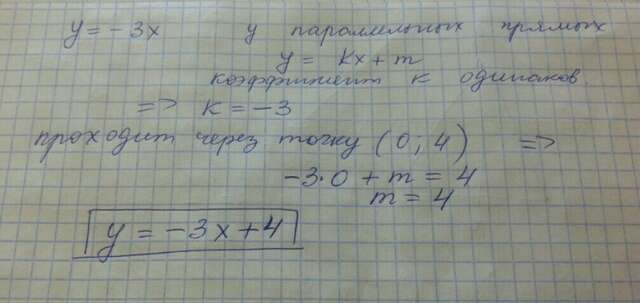 y = -3x у параллельных прямых
y = kx + m
коэффициент k одинаков.
=> k = -3
проходит через точку (0; 4) =>
-3·0 + m = 4
m = 4
y = -3x + 4